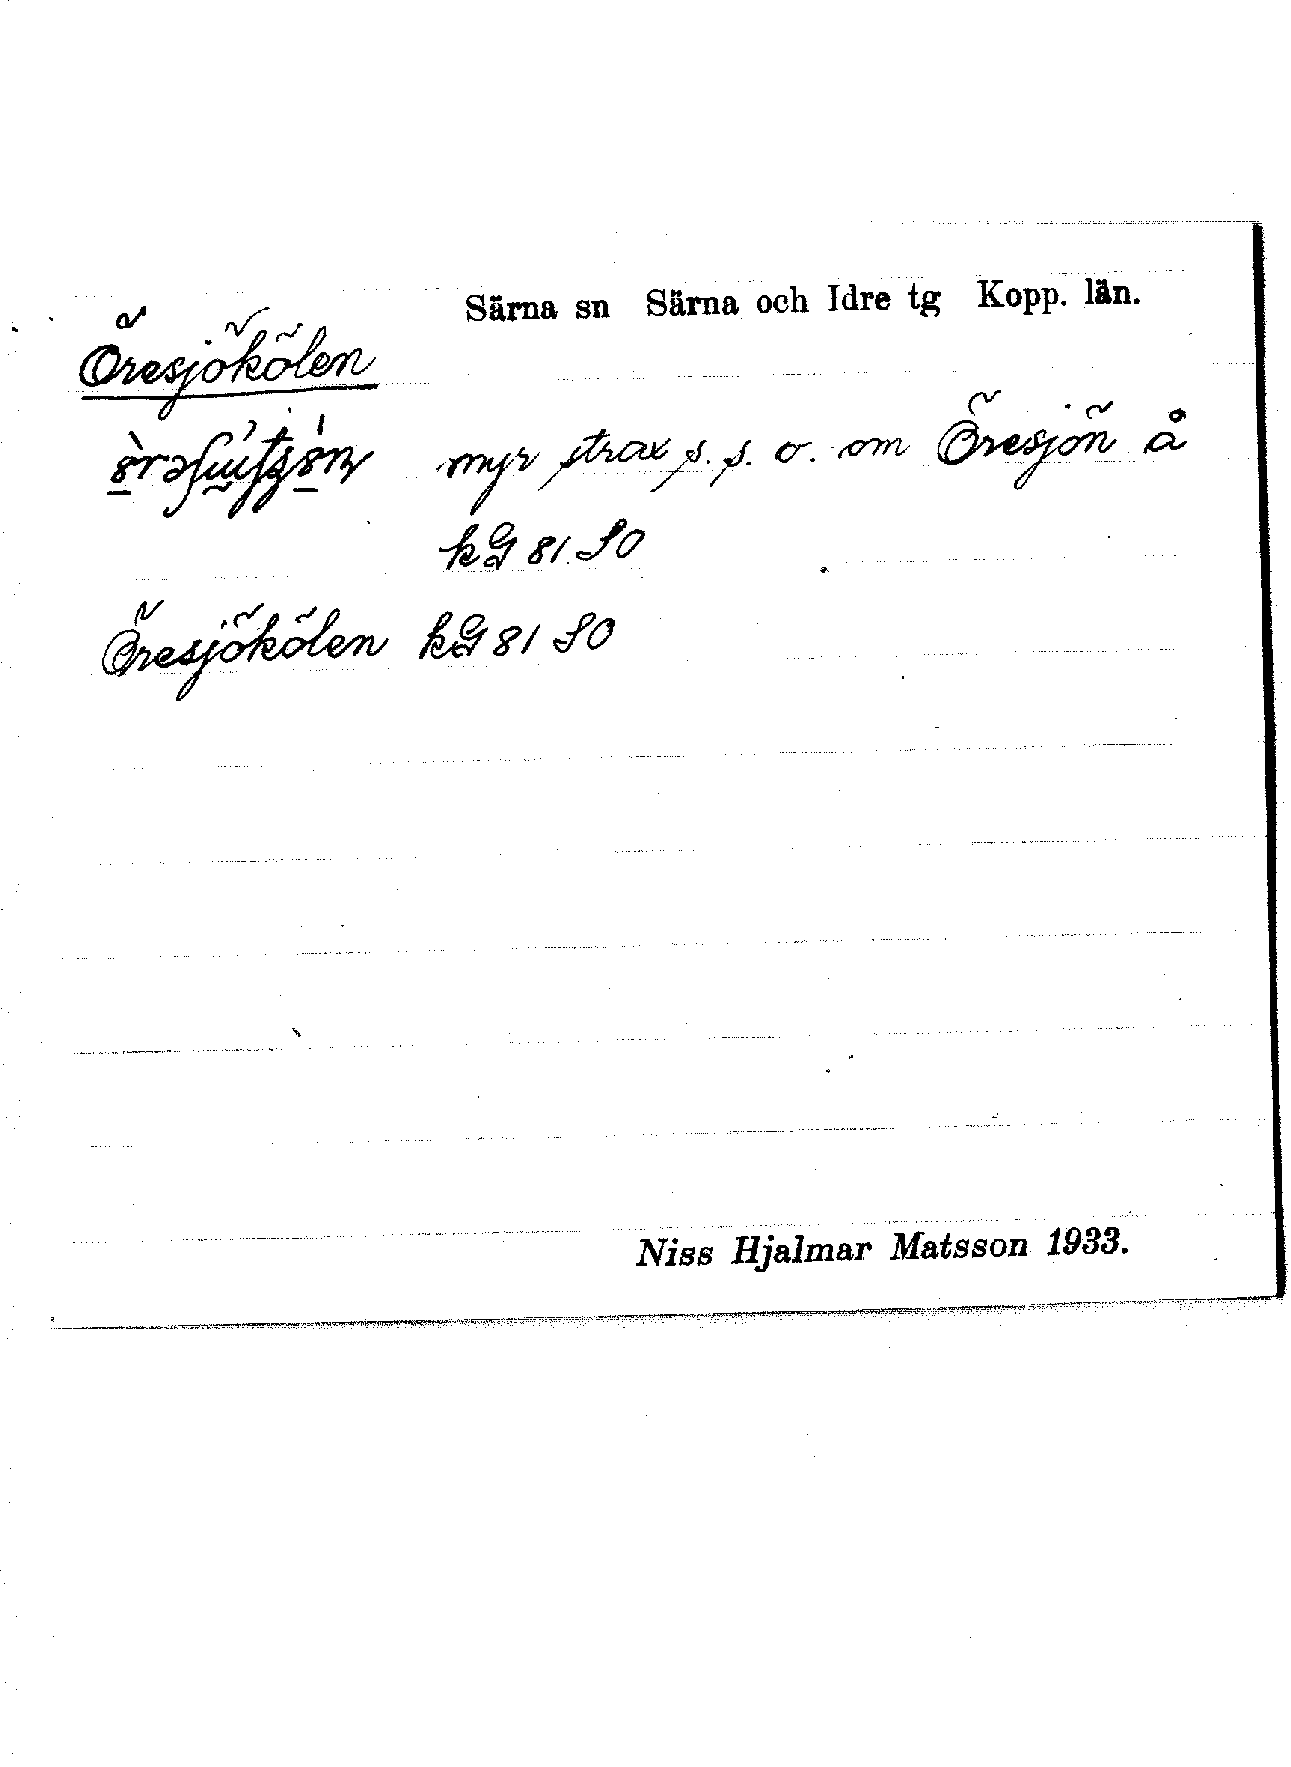 Särna sn Särna och Idre tg Kopp. län.
Öresjökölen
myr strax s. s. o. om Öresjön å
kG 81 SO
Öresjökölen kG 81 SO
Niss Hjalmar Matsson 1933.